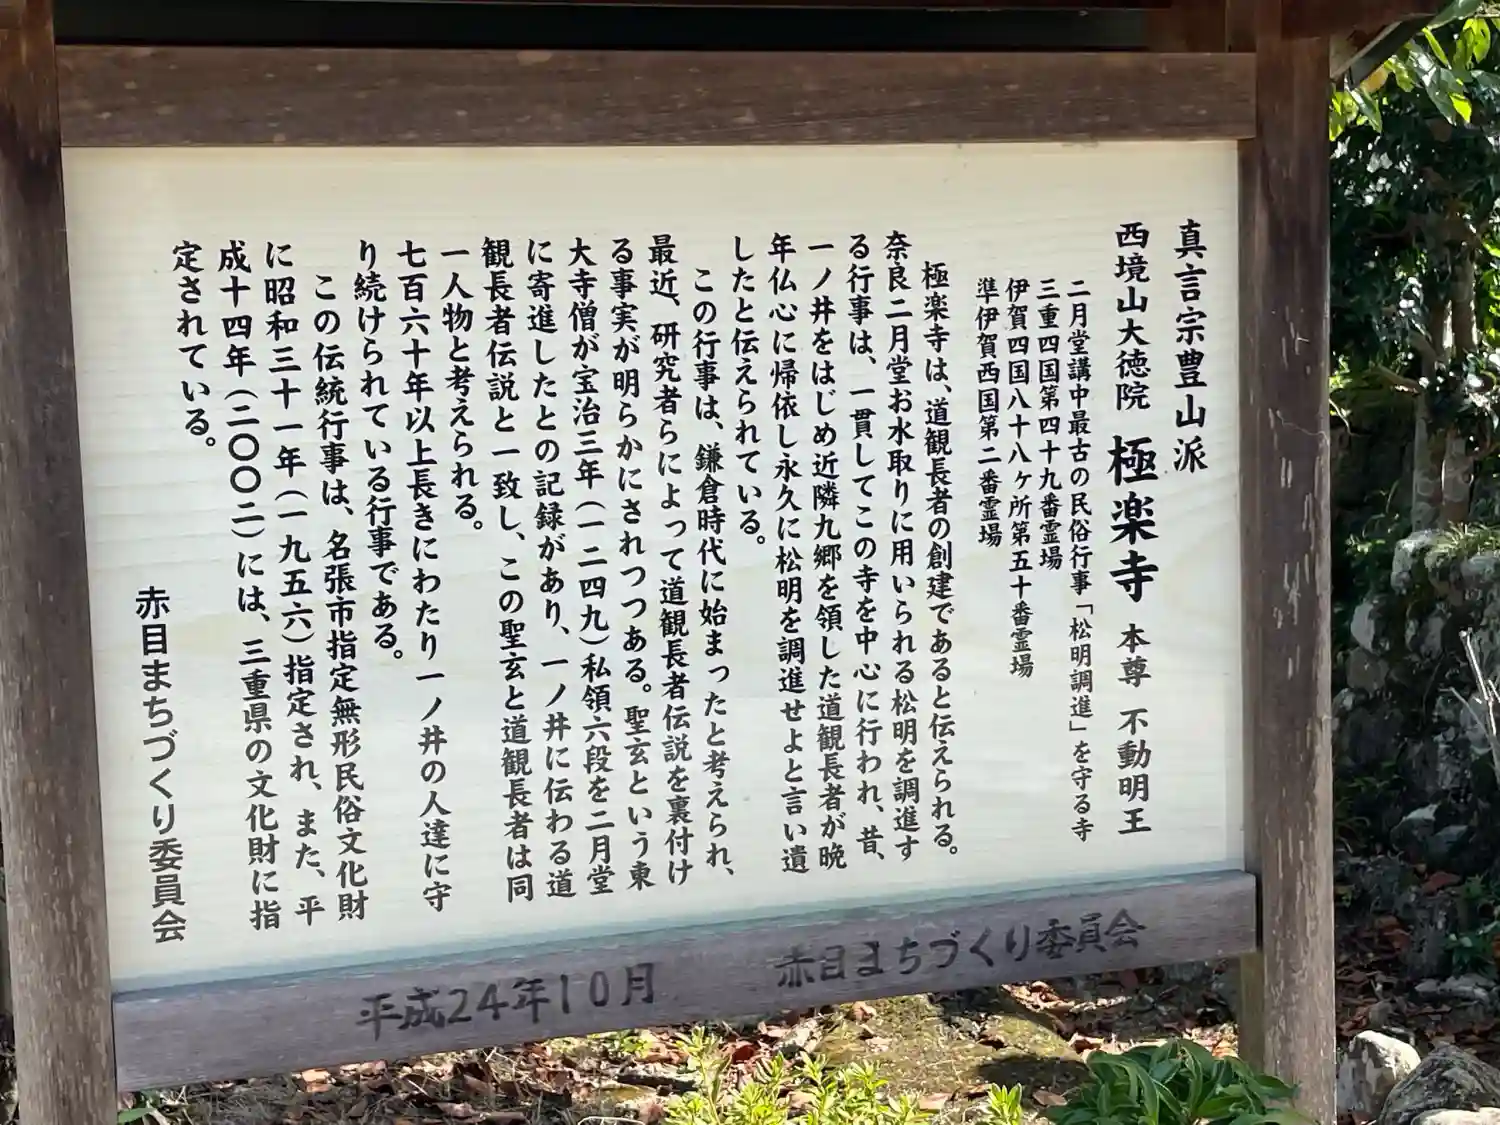 真言宗豊山派
西境山大徳院 極楽寺 本尊 不動明王
二月堂講中最古の民俗行事「松明調進」を守る寺
三重四国第四十九番霊場
伊賀四国八十八ヶ所第五十番霊場
準伊賀西国第二番霊場
極楽寺は、道観長者の創建であると伝えられる。
奈良二月堂お水取りに用いられる松明を調進す
る行事は、一貫してこの寺を中心に行われ、昔、
一ノ井をはじめ近隣九郷を領した道観長者が晩
年仏心に帰依し永久に松明を調進せよと言い遺
したと伝えられている。
この行事は、鎌倉時代に始まったと考えられ、
最近、研究者らによって道観長者伝説を裏付け
る事実が明らかにされつつある。聖玄という東
大寺僧が宝治三年(一二四九)私領六段を二月堂
に寄進したとの記録があり、一ノ井に伝わる道
観長者伝説と一致し、この聖玄と道観長者は同
一人物と考えられる。
七百六十年以上長きにわたり一ノ井の人達に守
り続けられている行事である。
この伝統行事は、名張市指定無形民俗文化財
に昭和三十一年(一九五六)指定され、また、平
成十四年(二〇〇二)には、三重県の文化財に指
定されている。
赤目まちづくり委員会
平成24年10月 赤目まちづくり委員会